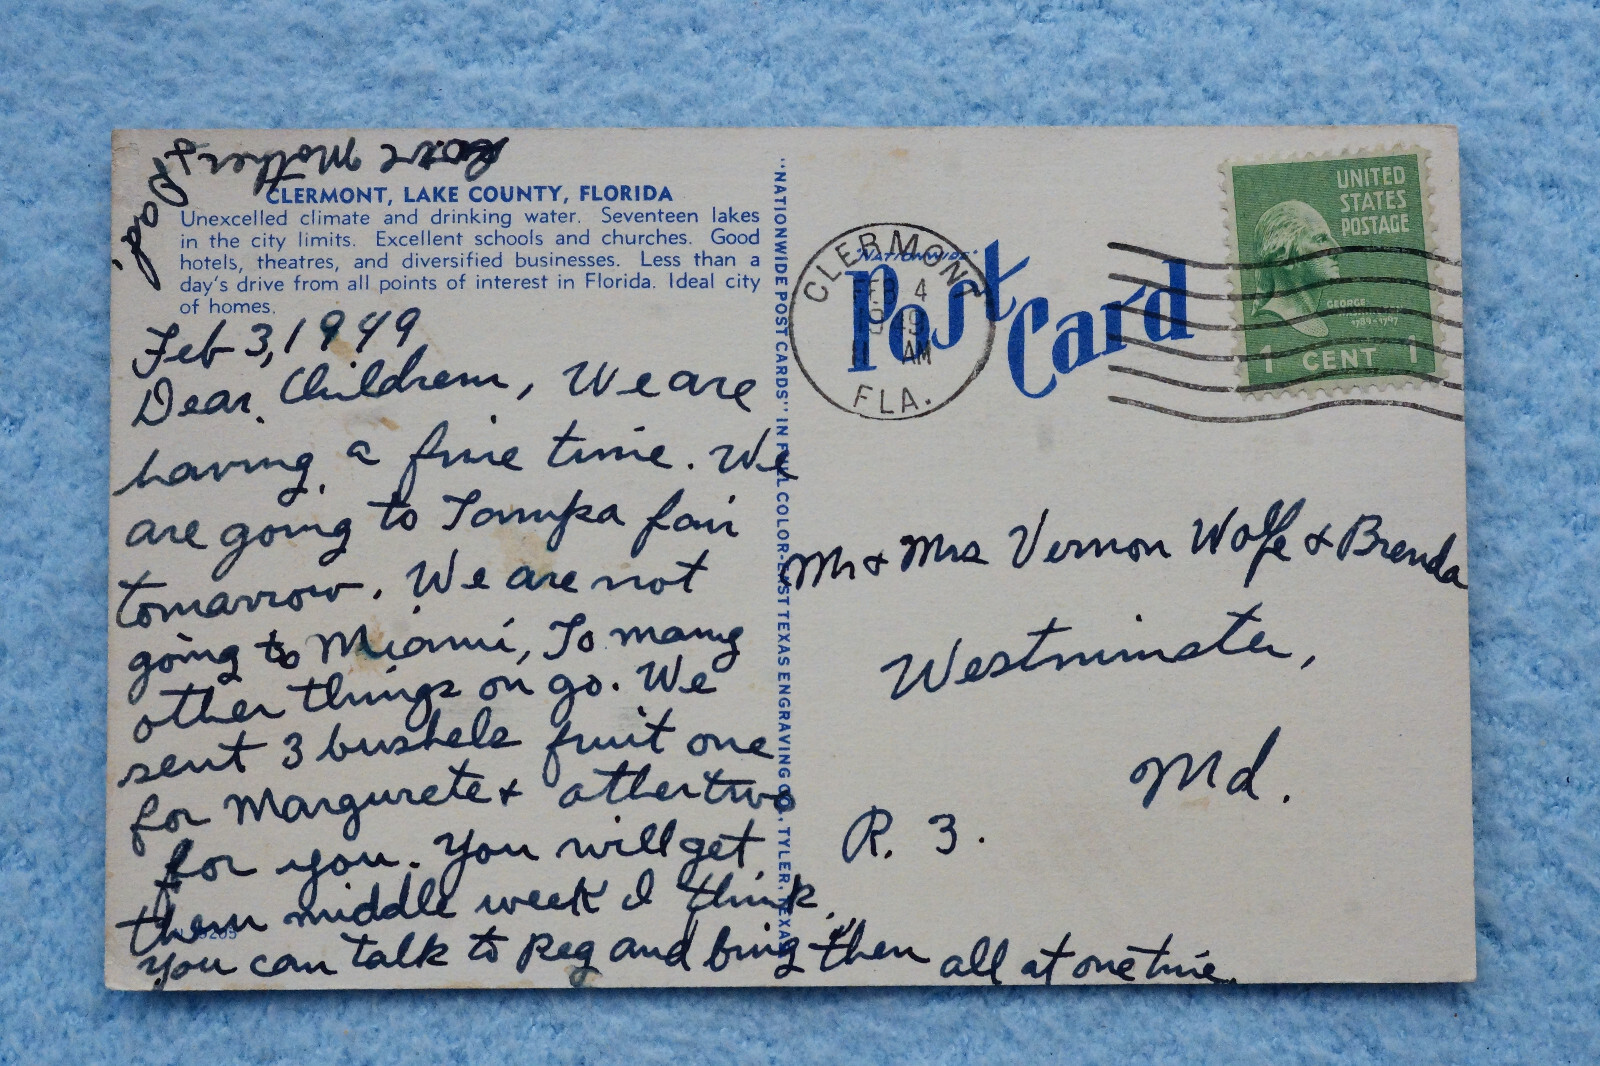 CLERMONT, LAKE COUNTY, FLORIDA
Unexcelled climate and drinking water. Seventeen lakes
in the city limits. Excellent schools and churches. Good
hotels, theatres, and diversified businesses. Less than a
day's drive from all points of interest in Florida. Ideal city
of homes.
Feb 3, 1949
Dear Children, We are
having a fine time. We
are going to Tampa fair
tomarrow. We are not
going to Miami, To many
other things on go. We
sent 3 bushels fruit one
for Margurete & other two
for you. You will get
them middle week I think.
you can talk to Reg and bring them all at one time.
Love Mother &
Dad.
"NATIONWIDE POST CARDS" IN FULL COLOR-EAST TEXAS ENGRAVING CO., TYLER, TEXAS
"NATIONWIDE"
Post Card
CLERMONT
FEB 4
1949
AM
FLA.
UNITED
STATES
POSTAGE
GEORGE
WASHINGTON
1789-1797
1 CENT 1
Mr & Mrs Vernon Wolfe & Brenda
Westminster,
Md.
R. 3.